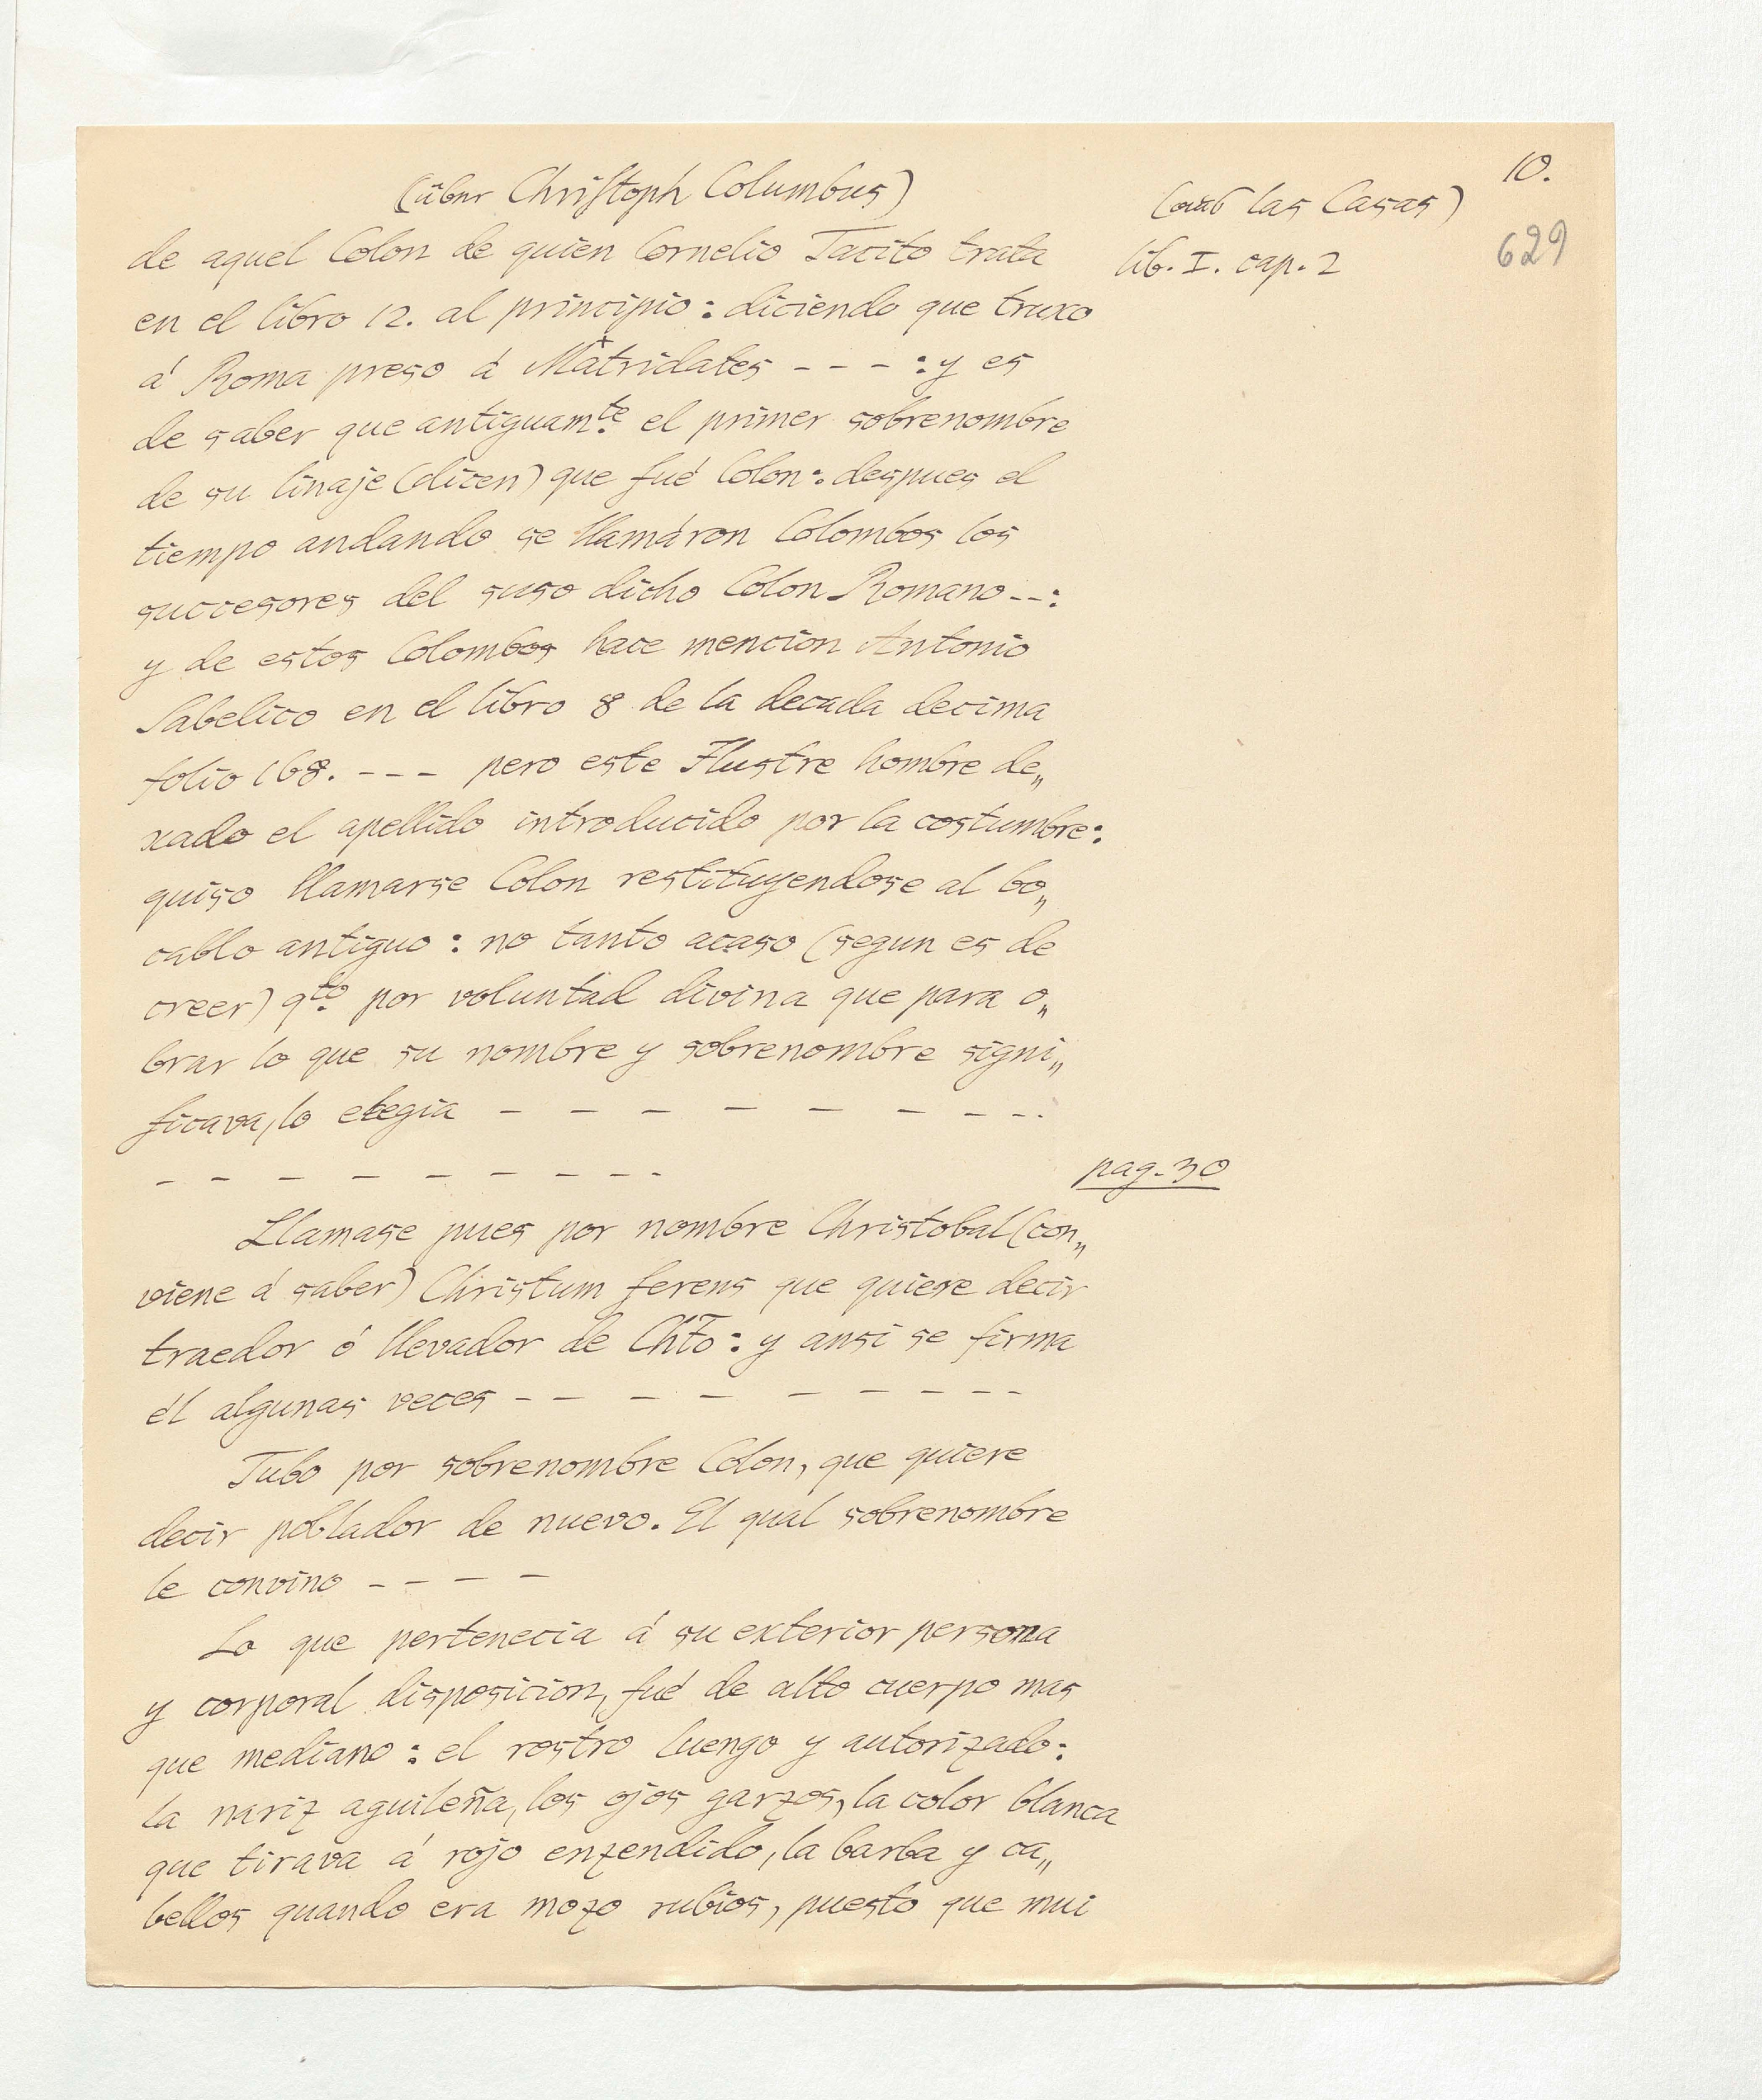 10.
(über Christoph Columbus)
(aus las Casas)
629
de aquel Colon de quien Cornelio Tacito trata
lib. I. cap. 2
en el libro 12. al principio: diciendo que truxo
á Roma preso á Matridates - - - : y es
de saber que antiguamte el primer sobrenombre
de su linaje (dicen) que fué Colon: despues el
tiempo andando se llamáron Colombos los
succesores del suso dicho Colon Romano --:
y de estos Colombos hace mencion Antonio
Sabelico en el libro 8 de la decada decima
folio 168. --- pero este Ilustre hombre de„
xado el apellido introducido por la costumbre:
quiso llamarse Colon restituyendose al bo„
cablo antiguo: no tanto acaso (segun es de
creer) qto por voluntad divina que para o„
brar lo que su nombre y sobrenombre signi„
ficava, lo elegia - - - - - - - - -
- - - - - - - - -
pag. 30
Llamase pues por nombre Christobal (con„
viene á saber) Christum ferens que quiere decir
traedor ó llevador de Chto: y ansi se firma
él algunas veces - - - - - - - - -
Tubo por sobrenombre Colon, que quiere
decir poblador de nuevo. El qual sobrenombre
le convino - - - -
Lo que pertenecia á su exterior persona
y corporal disposicion, fué de alto cuerpo mas
que mediano: el rostro luengo y autorizado:
la nariz aguileña, los ojos garzos, la color blanca
que tirava á rojo enzendido, la barba y ca„
bellos quando era mozo rubios, puesto que mui